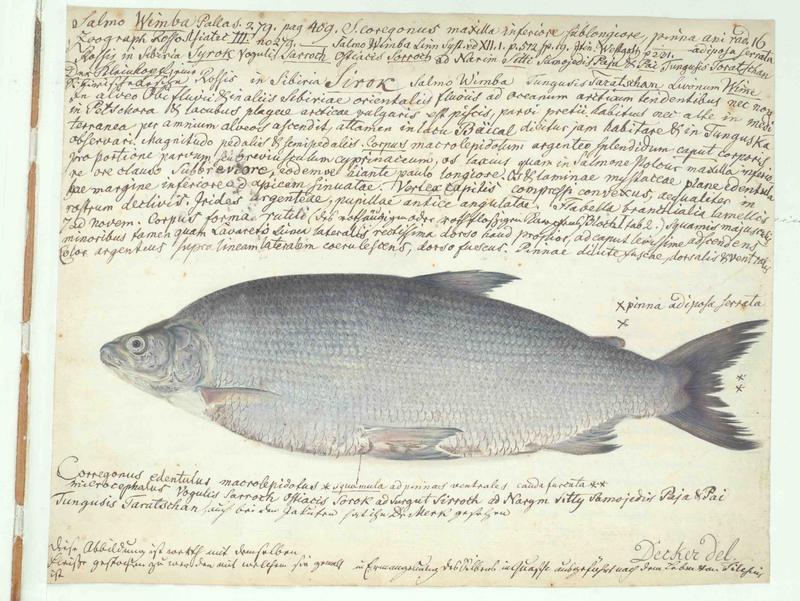 Salmo Wimba Pallas. 279. pag 409. S. coregonus maxilla inferiore sublongiore, pinna ani rad. 16
Zoograph Rosso Asiatic III. no 279. Salmo Wimba Linn Syst. ed XII. 1. p. 512 sp. 19. adiposa serrata
Rossis in Siberia Syrok Voguli Sarroch Ostiacis Sorroch ad Narim Sitti Samojedis Paja & Pai Tungusis Taratschan
Rossis in Sibiria Sirok Salmo Wimba Tungusis Taratschan Livonum Wime
in alveo Obi fluvii & in aliis Sibiriae orientalis fluviis ad oceanum arcticum tendentibus nec non
in Petschora & lacubus plagae arcticae vulgaris est piscis, parvi pretii habitus nec alte in medi
terranea per amnium alveos ascendit, attamen in lacu Baical dicitur jam habitare & in Tunguska
observari. Magnitudo pedalis & semipedalis. Corpus macrolepidotum argenteo splendidum caput corporis
proportione parvum seu breviusculum cyprinaceum, os laxius quam in Salmone maxilla inferio
re ore clauso subbreviore, eodemve hiante paulo longiore. laminae mystaceae plane edentula
hae margine inferiore ad apicem sinuatae. Vertex capitis compressi convexus, aequaliter in
rostrum declivis. Irides argenteae, pupillae antice angulatae. Tabella branchialis lamellis
7 ad novem. Corpus forma Rutili Bloch I tab 2. Squamis majusculis
minoribus tamen quam Lavareto Linea lateralis rectissima dorso haud propior, ad caput levissime adscendens
Color argenteus supra lineam lateralem coerulescens, dorso fuscus. Pinnae dilute fuscae, dorsalis & ventrales
×pinna adiposa serrata
×
×
×
Corregonus edentulus macrolepidotus × squamula ad pinnas ventrales cauda furcata ××
microcephalus Vogulis Sarroch Ostiacis Sorok ad Surgut Sirroth ad Narym Sitty Samojedis Paja & Pai
Tungusis Taratschan auch bei den Jakuten hat ihn Dr. Merk gesehen
Decker del.
Diese Abbildung ist werth mit demselben
Fleisse gestochen zu werden mit welchem sie gemalt in Ermangelung des Silbers in Guasche ausgeführt nach dem Leben von Tilesius
ist